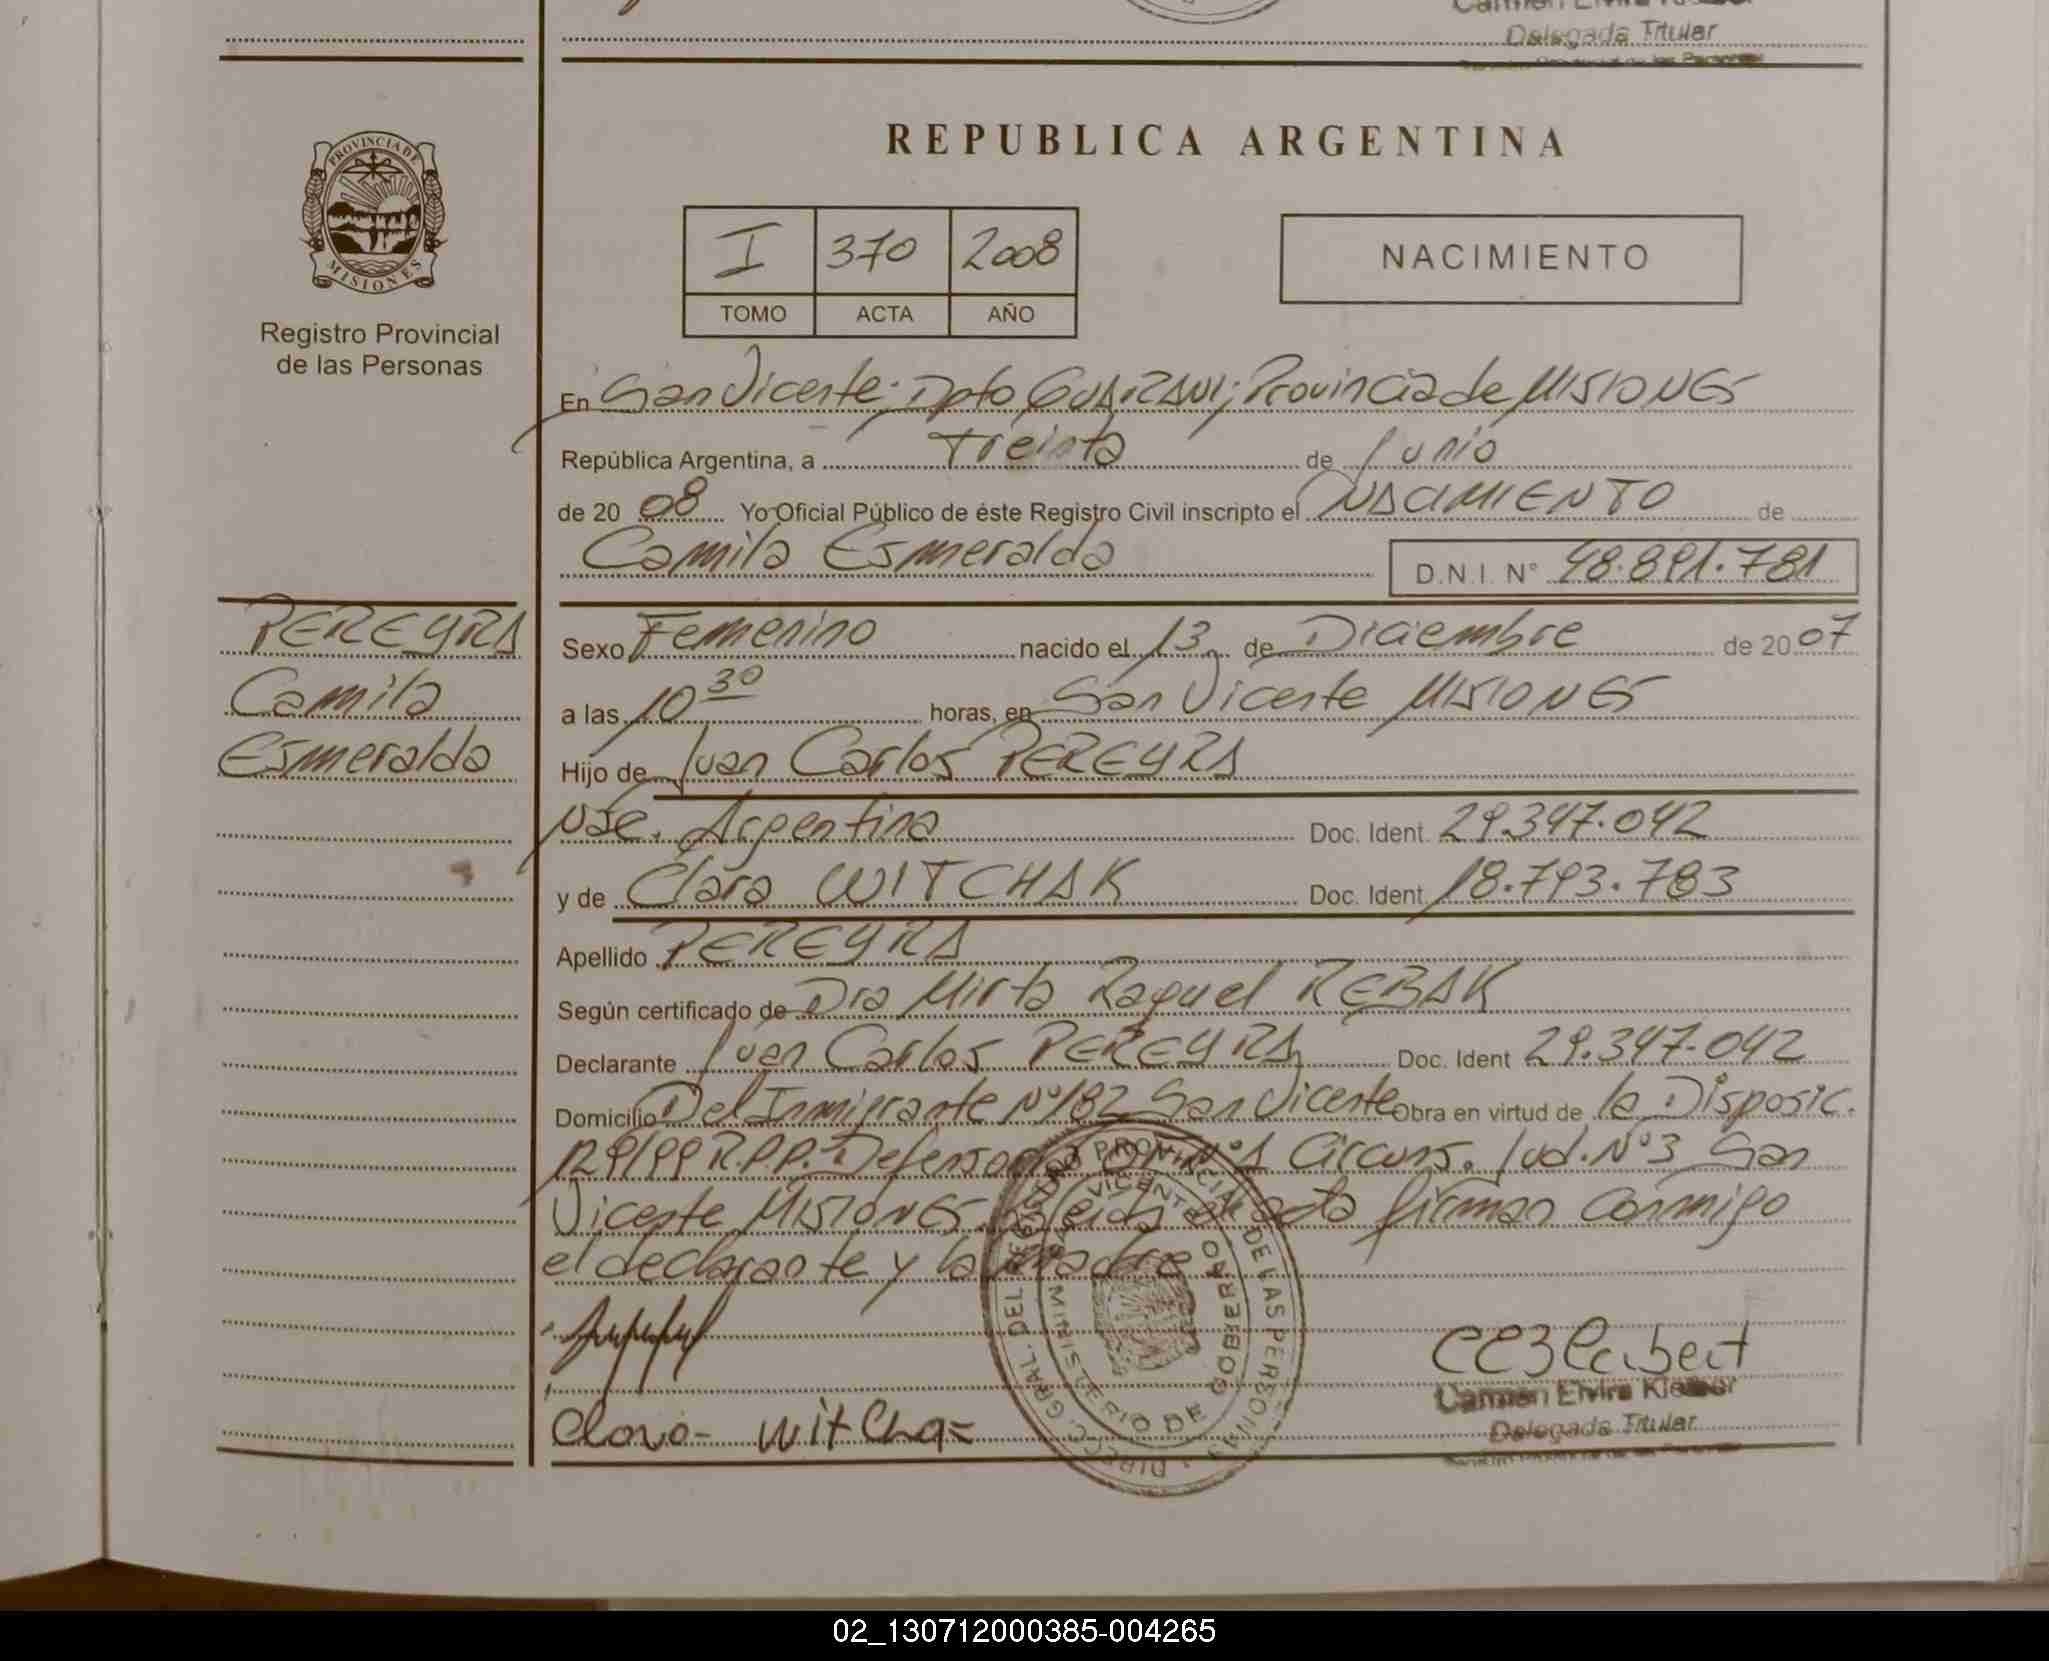 Delegada Titular
REPUBLICA ARGENTINA
PROVINCIA DE
MISIONES
Registro Provincial
de las Personas
I 370 2008
TOMO ACTA AÑO
NACIMIENTO
En San Vicente; Dpto GUARANI; Provincia de MISIONES
República Argentina, a Treinta de Junio
de 20 08 Yo Oficial Público de éste Registro Civil inscripto el NACIMIENTO de
Camila Esmeralda D.N.I. Nº 48.891.781
PEREYRA
Camila
Esmeralda
Sexo Femenino nacido el 13 de Diciembre de 20 07
a las 10 30 horas, en San Vicente MISIONES
Hijo de Juan Carlos PEREYRA
Nac. Argentina Doc. Ident. 29.347.042
y de Clara WITCHAK Doc. Ident. 18.793.783
Apellido PEREYRA
Según certificado de Dra Mirta Raquel REBAK
Declarante Juan Carlos PEREYRA Doc. Ident 29.347.042
Domicilio Del Inmigrante Nº 182 San Vicente Obra en virtud de la Disposic.
129/99 R.P.P. Nº1 Circuns. Jud. Nº3 San
Vicente MISIONES. Leida el acta firman conmigo
el declarante y la madre
DIRECC. GRAL. DEL REGISTRO PROVINCIAL DE LAS PERSONAS
SAN VICENTE
MINISTERIO DE GOBIERNO
Carmen Elvira
Delegada Titular
Clara witcha
02_130712000385-004265